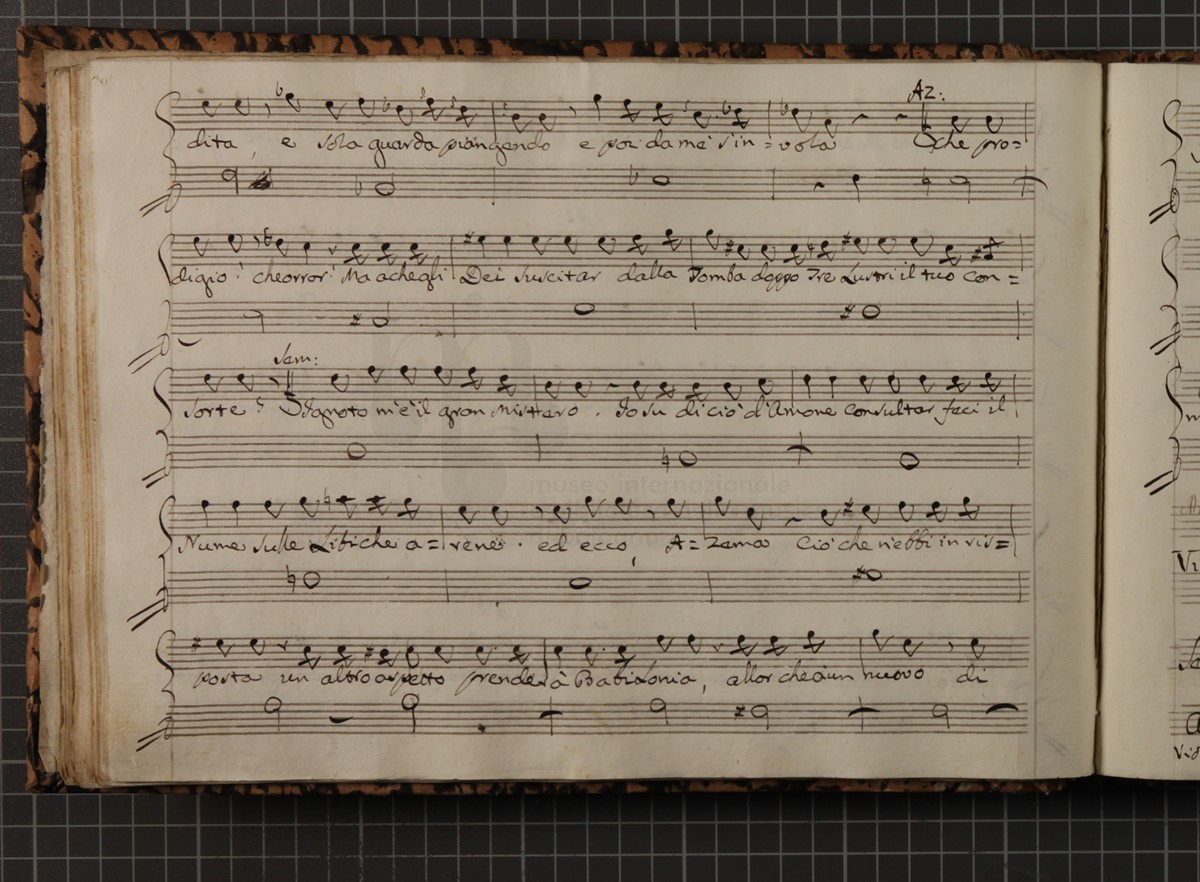 Az:
dita, e sola guarda piangendo e poi da me s'in = vola Oh che pro =
digio! che orror! Ma a che gli Dei suscitar dalla Tomba doppo Tre Lustri il tuo con =
Sem:
sorte? Ignoto m'è il gran Mistero. Io su di ciò d'Amone consultar feci il
Nume sulle Libiche a = rene. ed ecco, A = zema Ciò che n'ebbi in ris =
posta un altro aspetto prenderà Babilonia, allor che à un nuovo di
museo internazionale